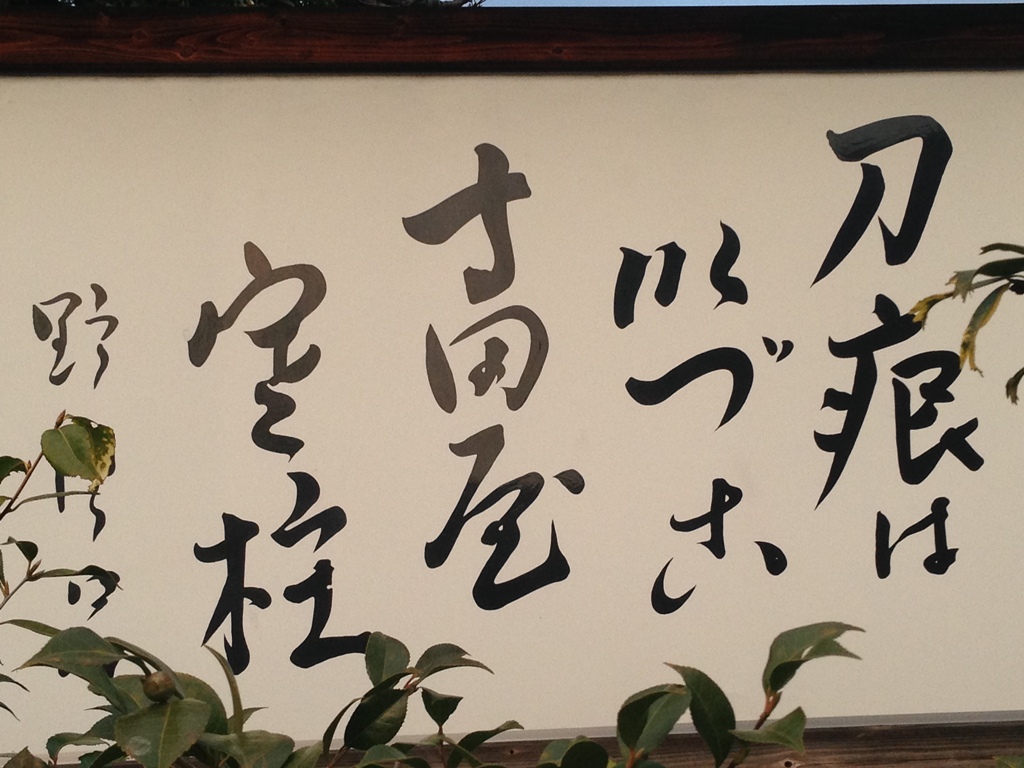 刀痕は
いづこ
寺田屋
寒柱
野